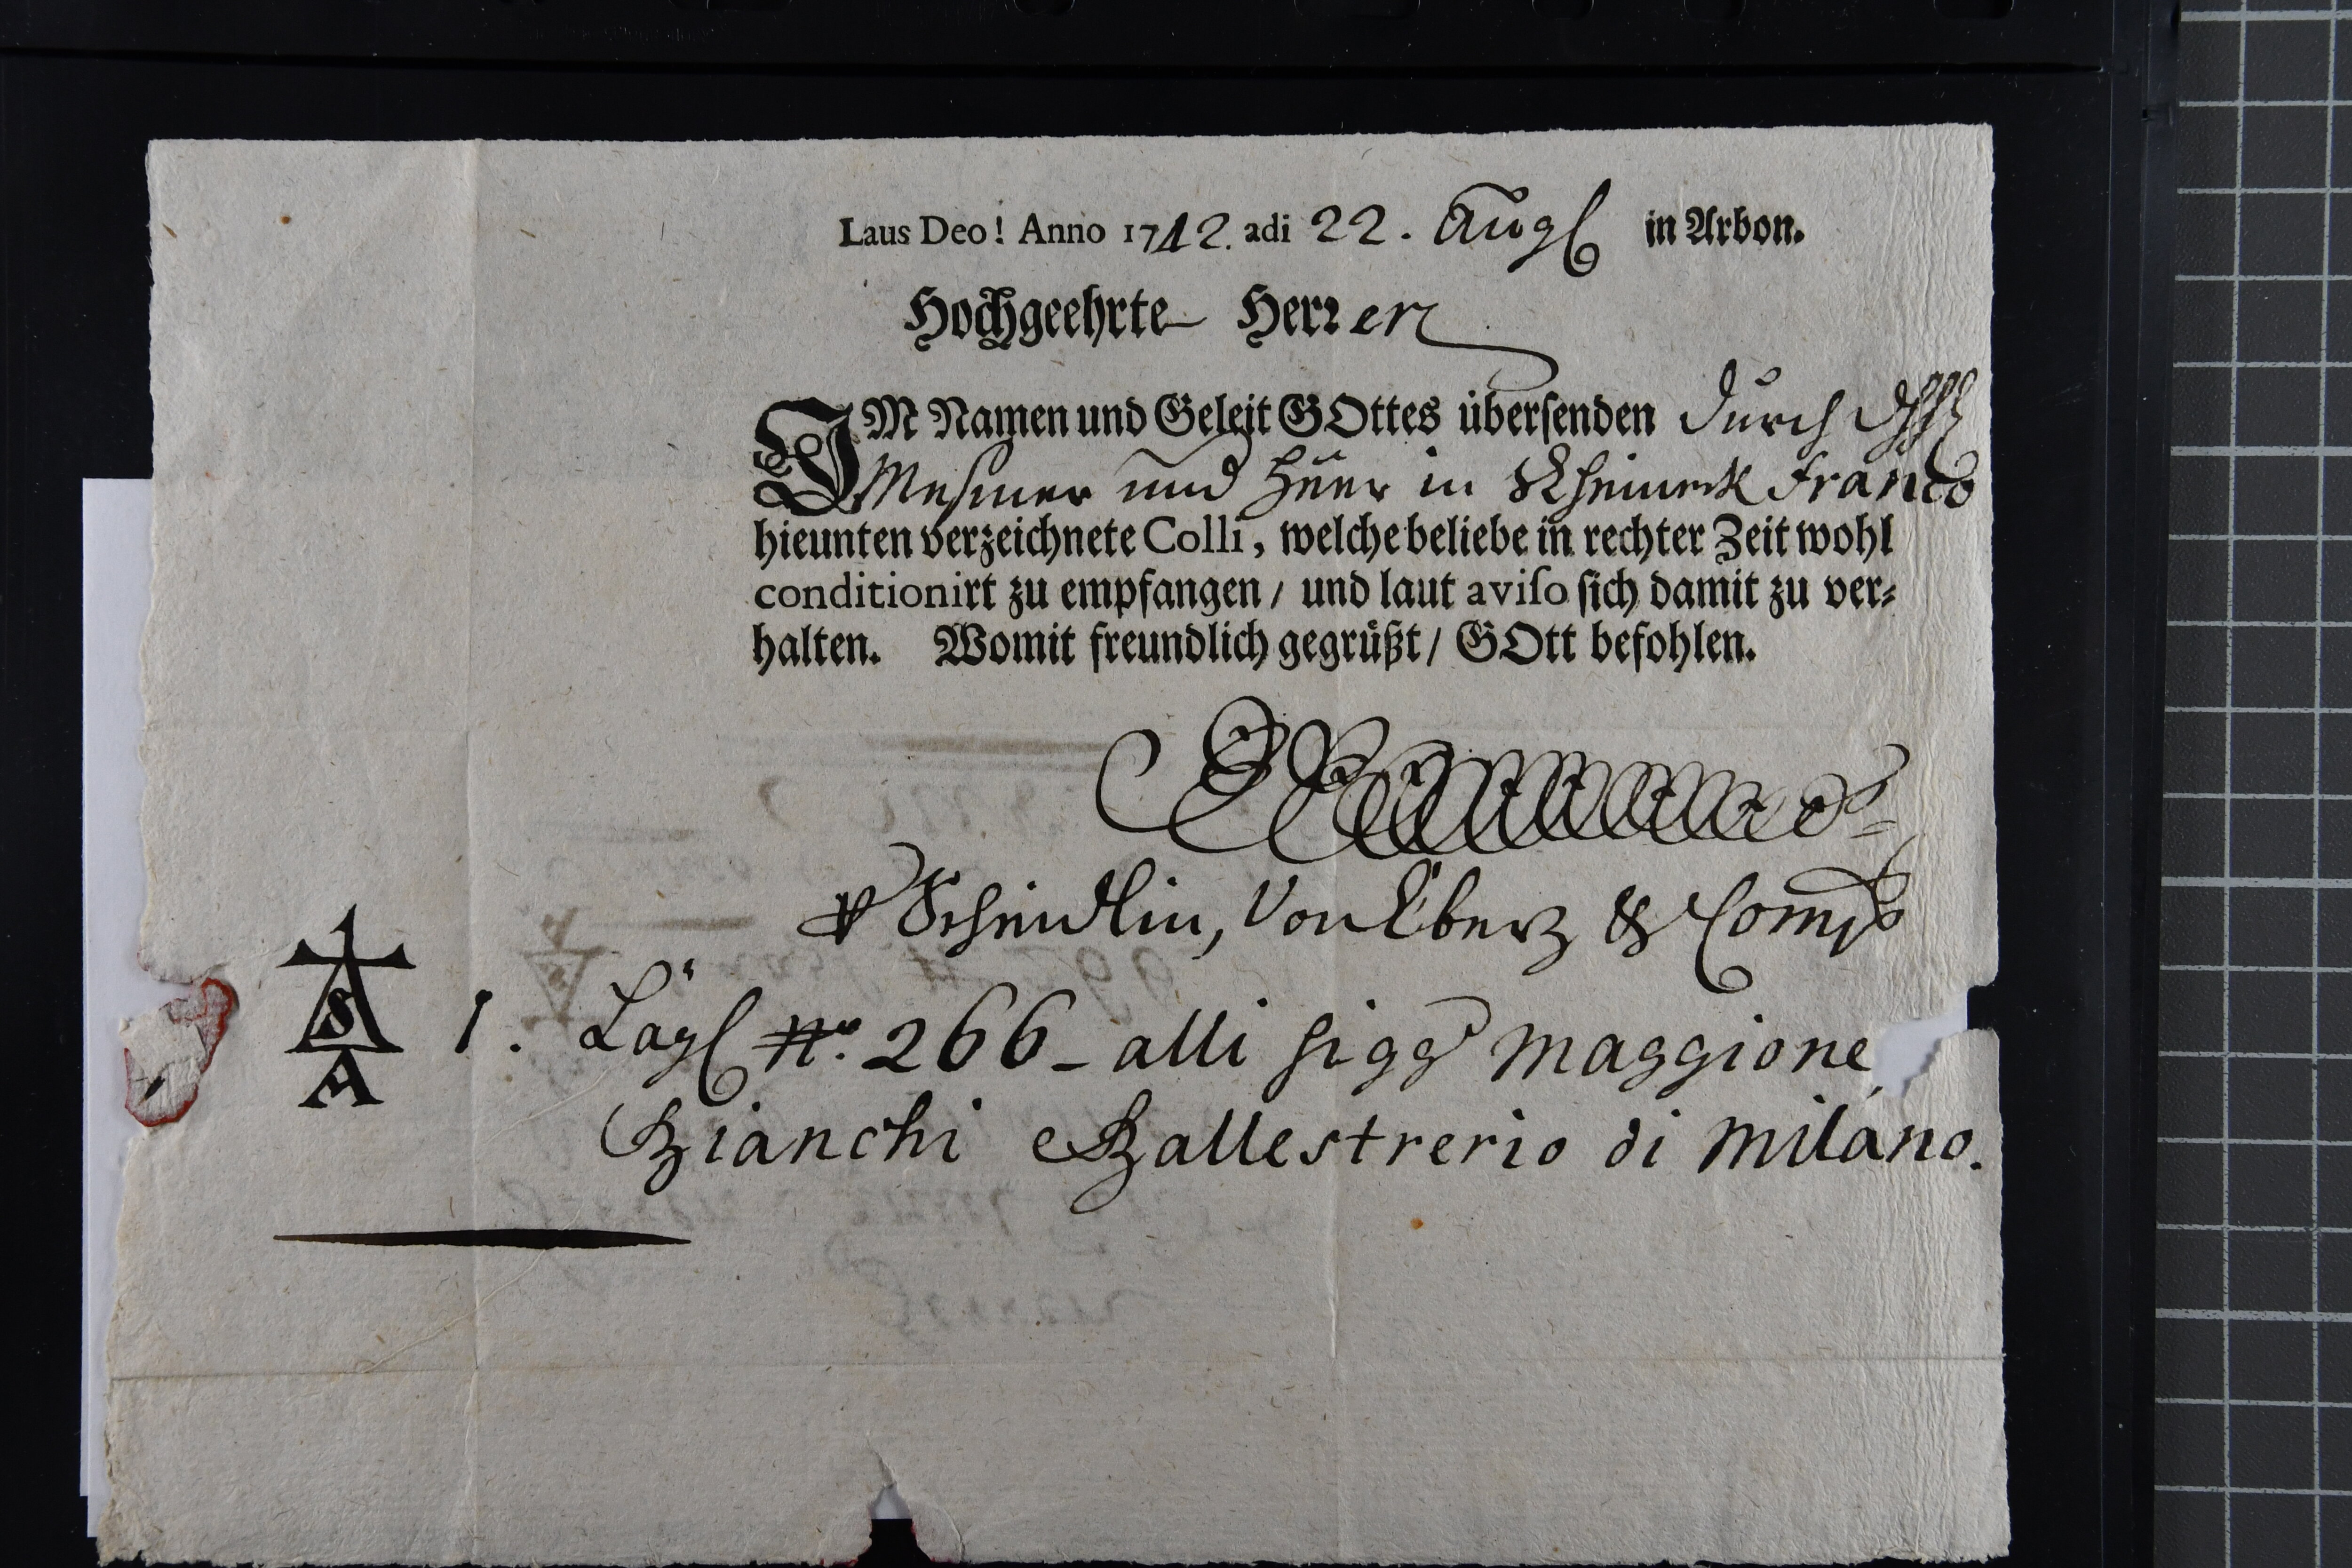 Laus Deo! Anno 1712. adi 22. Augſ in Arbon.
Hochgeehrte Herren
IM Namen und Geleit GOttes überſenden durch
Meſmer und Huer in Rheineck Franco
hieunten verzeichnete Colli, welche beliebe in rechter Zeit wohl
conditionirt zu empfangen / und laut aviſo ſich damit zu ver⸗
halten. Womit freundlich gegrüßt / GOtt befohlen.
Scheidlin, Von Eberz & Comp
S
A
1. Lägl No. 266 - alli ſigg Maggione
Bianchi e Ballestrerio di Milano.